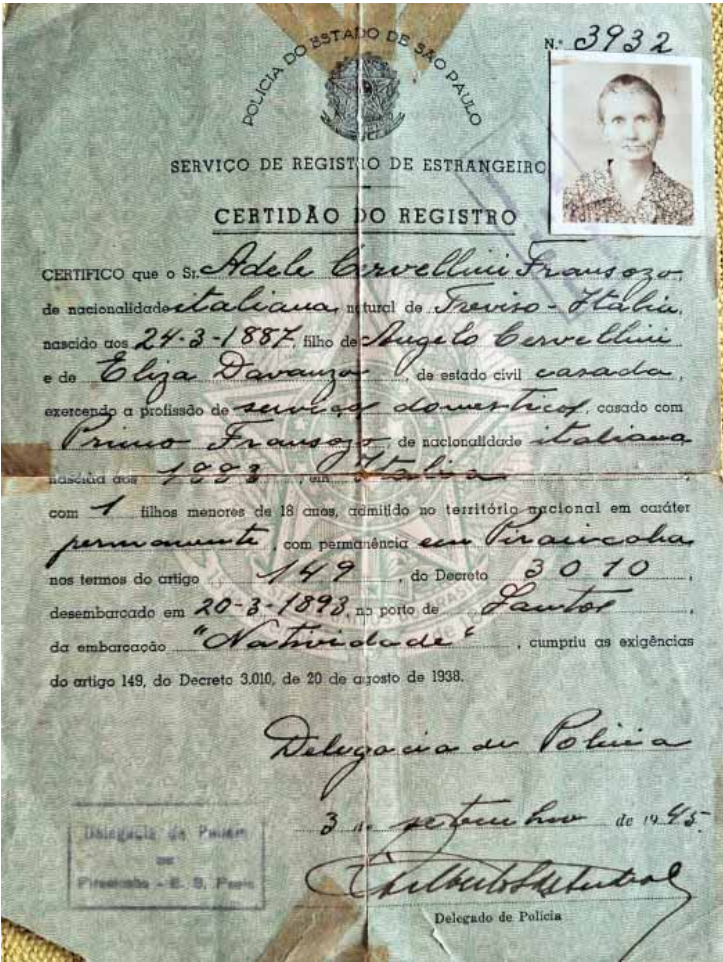 N.º 3932
POLICIA DO ESTADO DE SÃO PAULO
SERVIÇO DE REGISTRO DE ESTRANGEIRO
CERTIDÃO DO REGISTRO
CERTIFICO que o Sr. Adele Cervellini Fransozo,
de nacionalidade italiana, natural de Treviso - Italia,
nascido aos 24-3-1887, filho de Angelo Cervellini
e de Eliza Davanzo, de estado civil casada,
exercendo a profissão de serviços domesticos, casado com
Primo Fransozo de nacionalidade italiana
nascida aos 1883, em Italia,
com 1 filhos menores de 18 anos, admitido no território nacional em caráter
permanente, com permanência em Piracicaba
nos termos do artigo 149, do Decreto 3010,
desembarcado em 20-3-1893, no porto de Santos,
da embarcação "Natividade", cumpriu as exigências
do artigo 149, do Decreto 3.010, de 20 de agosto de 1938.
Delegacia de Policia
3 de setembro de 1945.
Delegacia de Policia
Delegado de Policia